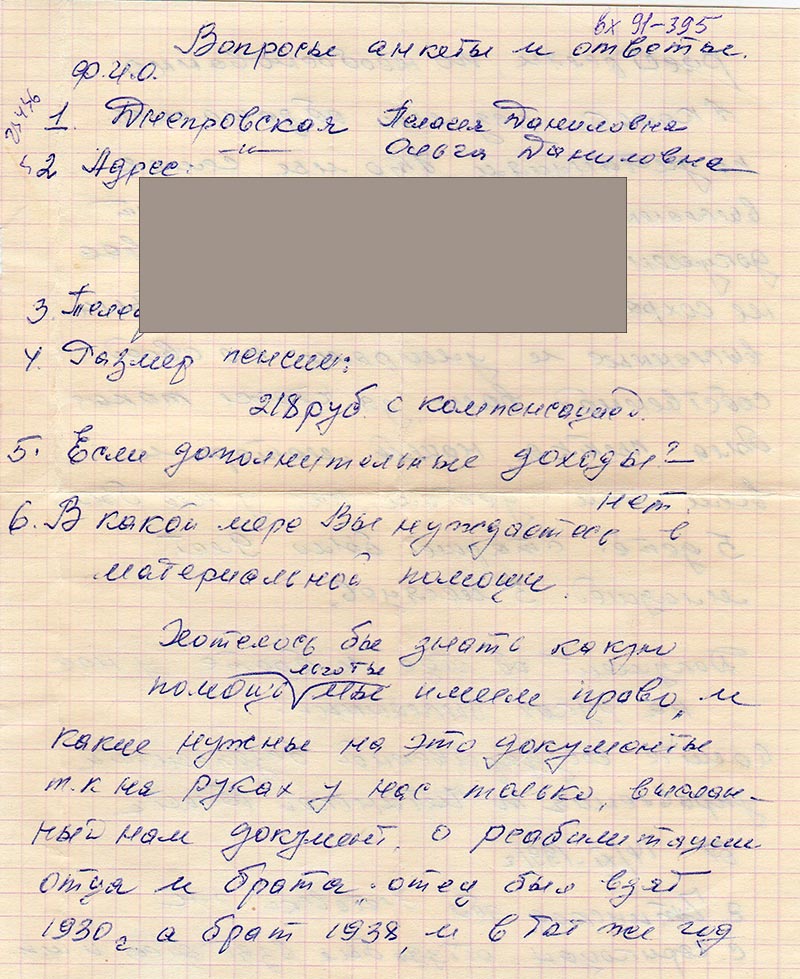 вх 91-395
Вопросы анкеты и ответы.
Ф.И.О.
1. Днепровская Пелагея Даниловна
—"— Ольга Даниловна
2 Адрес:
3. Телеф
4. Размер пенсии:
218 руб с компенсацией.
5. Если дополнительные доходы? –
нет.
6. В какой мере Вы нуждаетесь в
материальной помощи.
Хотелось бы знать какую
льготы
помощь мы имеем право, и
какие нужны на это документы
т.к на руках у нас только, выслан-
ный нам документ, о реабилитации
отца и брата. отец был взят
1930г, а брат 1938, и в тот же год